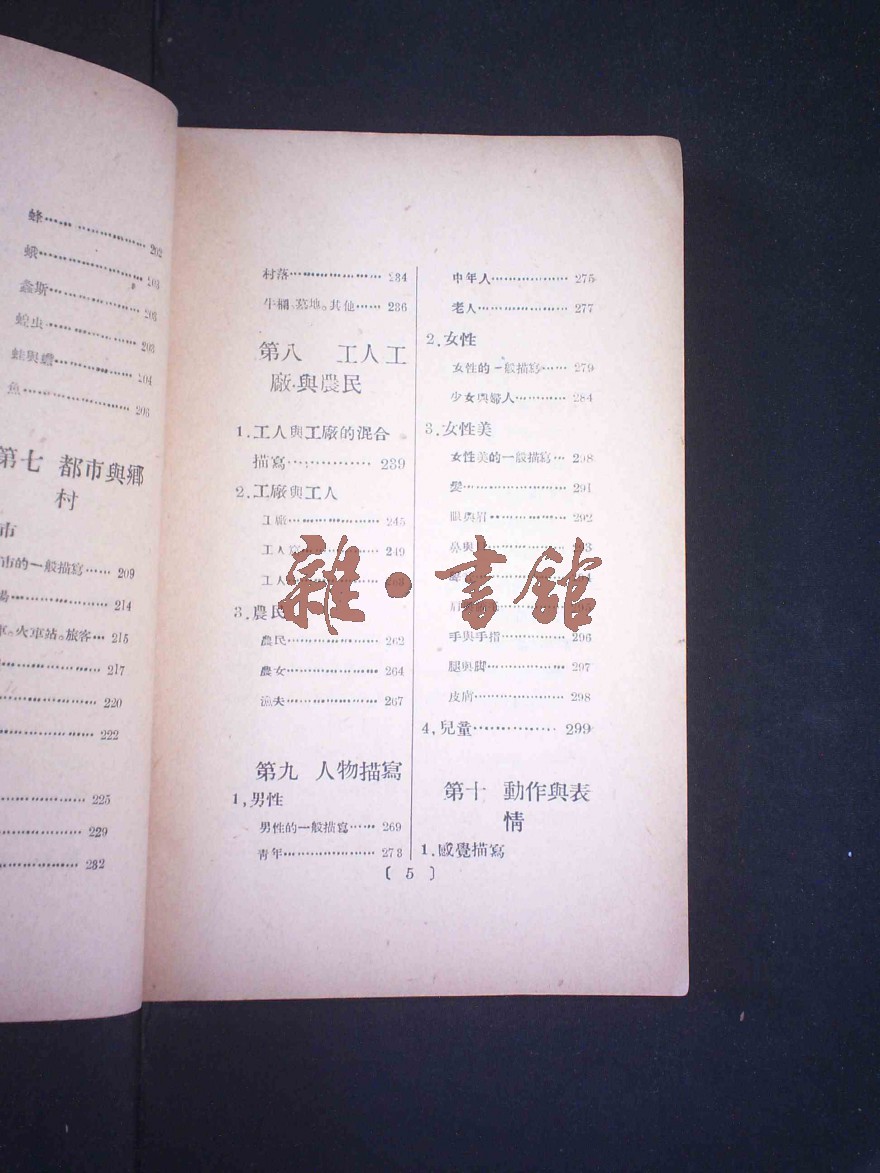 蜂……………… 202
蛾……………… 203
螽斯…………… 203
蝗虫…………… 203
蛙與蟾………… 204
魚……………… 206
第七 都市與鄉
村
市
市的一般描寫…… 209
場……………… 214
車。火車站。旅客… 215
……………… 217
……………… 220
……………… 222
……………… 225
……………… 229
……………… 232
村落……………… 234
牛欄。墓地。其他…… 236
第八 工人工
廠與農民
1.工人與工廠的混合
描寫…………… 239
2.工廠與工人
工廠……………… 245
工人 249
工人
3.農民
農民……………… 262
農女……………… 264
漁夫……………… 267
第九 人物描寫
1,男性
男性的一般描寫…… 269
青年……………… 273
中年人…………… 275
老人……………… 277
2.女性
女性的一般描寫…… 279
少女與婦人……… 284
3.女性美
女性美的一般描寫… 298
髮……………… 291
眼與眉………… 292
鼻與 293
手與手指……… 296
腿與脚………… 297
皮膚…………… 298
4,兒童…………… 299
第十 動作與表
情
1.感覺描寫
〔 5 〕
雜·書館